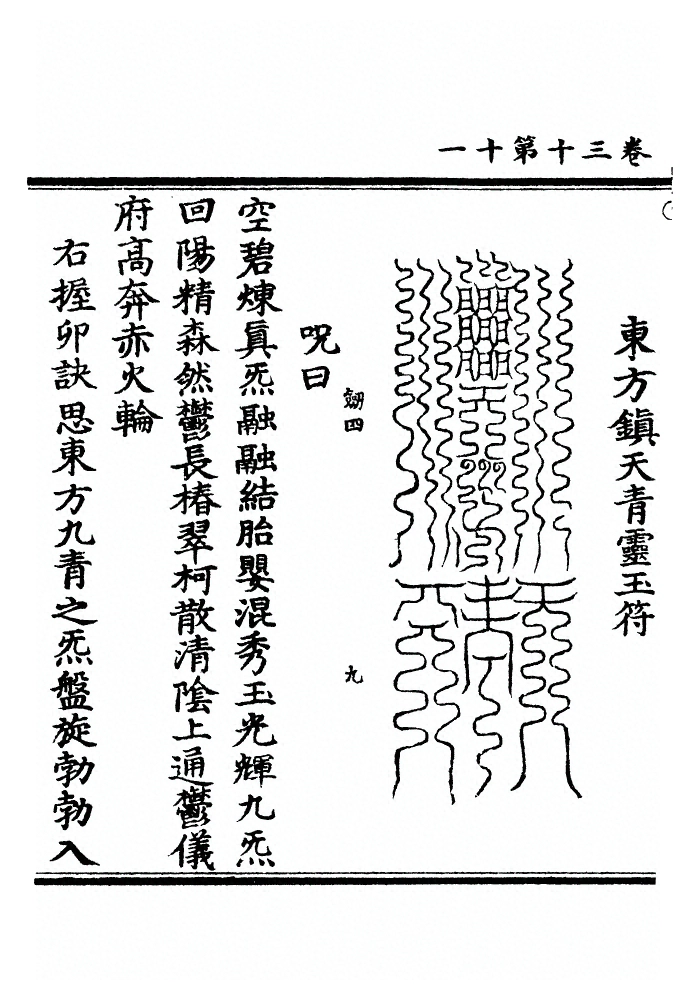 卷三十第十一
東方鎮天青靈玉符
劒四
九
呪曰
空碧煉真炁融融結胎嬰混秀玉光輝九炁
回陽精森然鬱長椿翠柯散清陰上通鬱儀
府高奔赤火輪
右握卯訣思東方九青之炁盤旋勃勃入